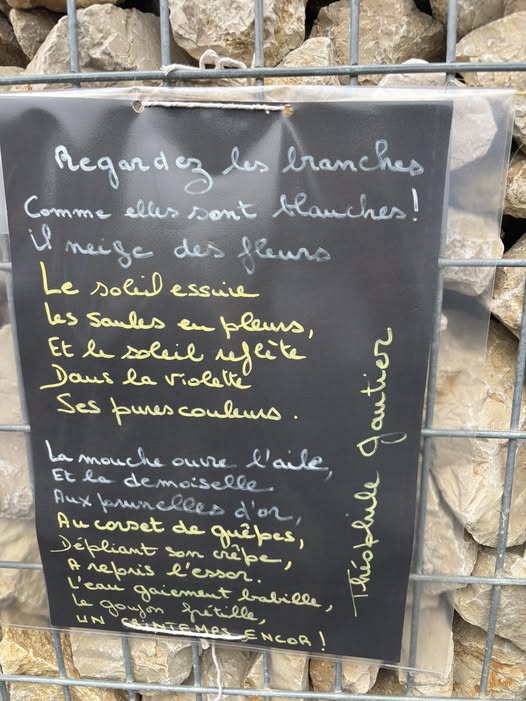 Regardez les branches
Comme elles sont blanches!
il neige des fleurs
Le soleil essuie
Les saules en pleurs,
Et le soleil reflète
Dans la violette
Ses pures couleurs.
La mouche ouvre l'aile,
Et la demoiselle
Aux prunelles d'or,
Au corset de guêpes,
Dépliant son crêpe,
A repris l'essor.
L'eau gaiement babille,
Le goujon frétille,
UN PRINTEMPS ENCOR!
Théophile Gautier